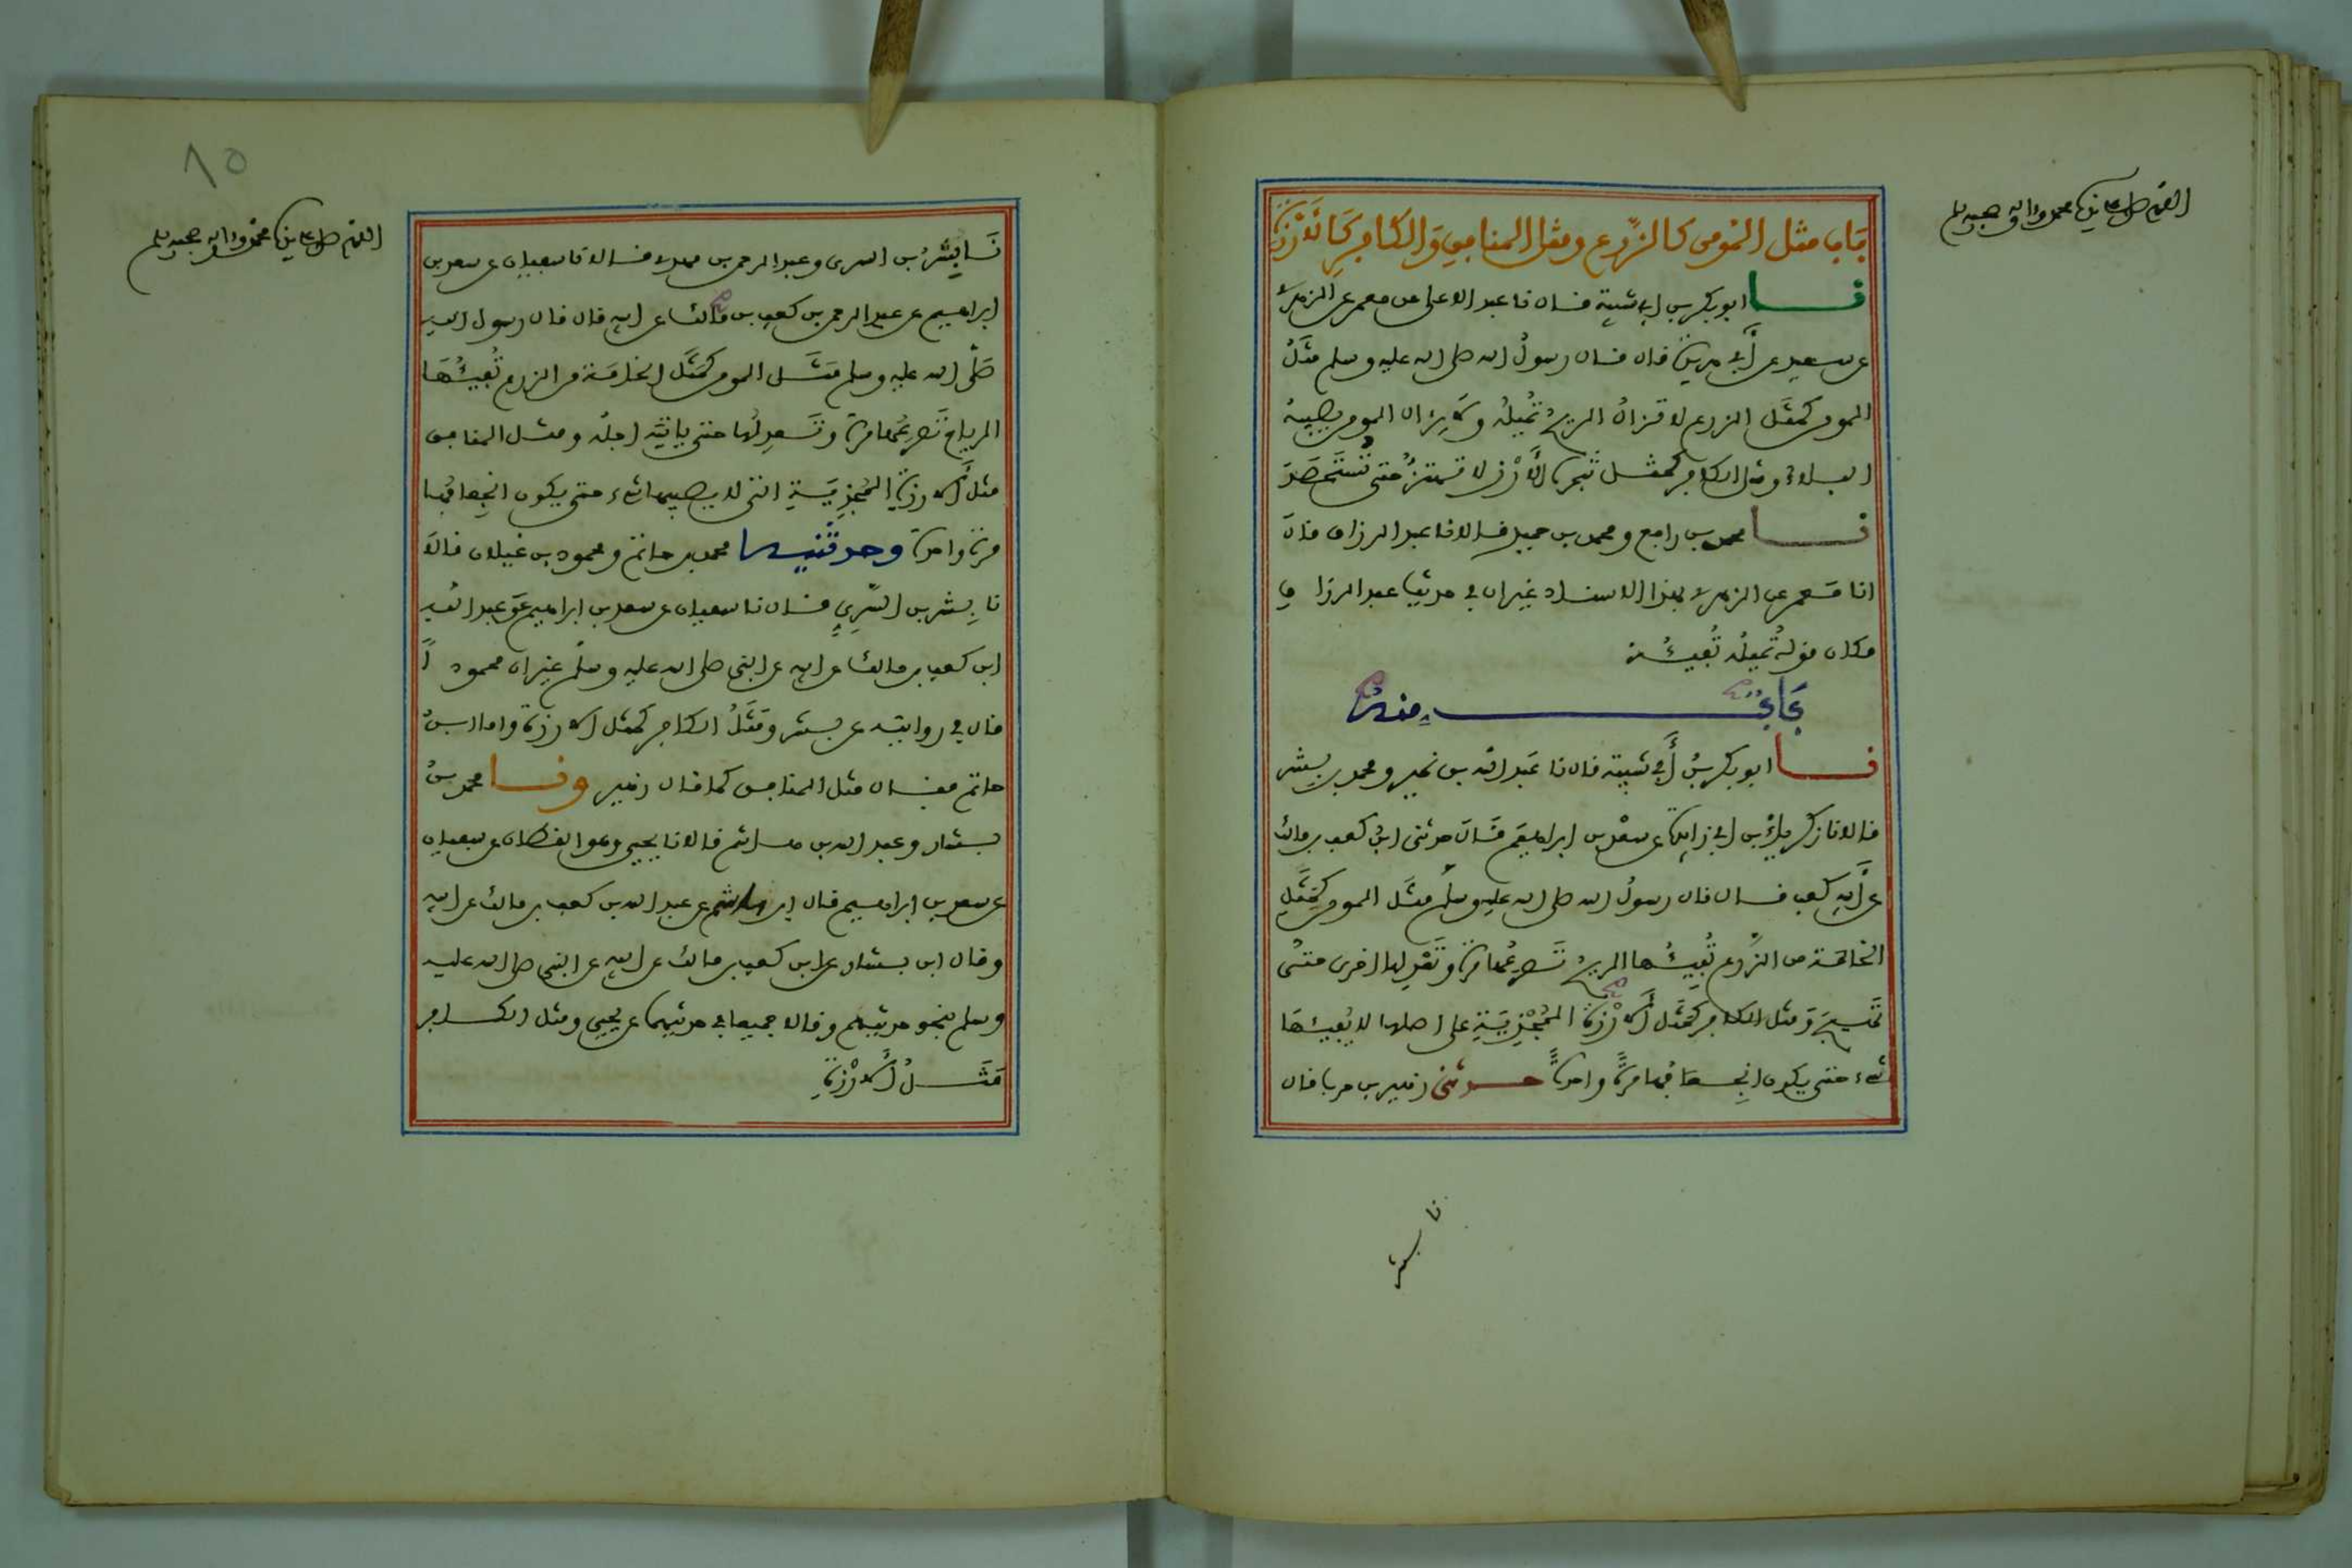 اللهم صل على نبينا محمد واله وصحبه وسلم
باب مثل المومن كالزرع ومثل المنافق والكافر كالارزة
نا ابو بكر بن ابي شيبة قال نا عبد الاعلى عن معمر عن الزهري
عن سعيد عن أبي هريرة قال قال رسول الله صلى الله عليه وسلم مثل
المومن كمثل الزرع لا تزال الريح تميله ولا يزال المومن يصيبه
البلاء ومثل الكافر كمثل شجرة الأرز لا تهتز حتى تستحصد
نا محمد بن رافع ومحمد بن حميد قالا نا عبد الرزاق قال
انا معمر عن الزهري بهذا الاسناد غير ان في حديث عبد الرزاق
مكان قوله تميله تفيئه
باب منه
نا ابو بكر بن أبي شيبة قال نا عبد الله بن نمير ومحمد بن بشر
قالا نا زكرياء بن ابي زايدة عن سعد بن ابراهيم قال حدثني ابن كعب بن مالك
عن أبيه كعب قال قال رسول الله صلى الله عليه وسلم مثل المومن كمثل
الخامة من الزرع تفيئها الريح تصرعها مرة وتعدلها اخرى حتى
تهيج ومثل الكافر كمثل الأرزة المجذية على اصلها لا يفيئها
شيء حتى يكون انجعافها مرة واحدة حدثني زهير بن حرب قال
نا بشر
اللهم صل على نبينا محمد واله وصحبه وسلم
٨٥
نا بشر بن السري وعبد الرحمن بن مهدي قالا نا سفيان عن سعد بن
ابراهيم عن عبد الرحمن بن كعب بن مالك عن ابيه قال قال رسول الله
صلى الله عليه وسلم مثل المومن كمثل الخامة من الزرع تفيئها
الرياح تصرعها مرة وتعدلها حتى ياتيه اجله ومثل المنافق
مثل الأرزة المجذية التي لا يصيبها شيء حتى يكون انجعافها
مرة واحدة وحدثنيه محمد بن حاتم ومحمود بن غيلان قالا
نا بشر بن السري قال نا سفيان عن سعد بن ابراهيم عن عبد الله
ابن كعب بن مالك عن ابيه عن النبي صلى الله عليه وسلم غير ان محمودا
قال في روايته عن بشر ومثل الكافر كمثل الارزة واما ابن
حاتم فقال مثل المنافق كما قال زهير ونا محمد بن
بشار وعبد الله بن هاشم قالا نا يحيى وهو القطان عن سفيان
عن سعد بن ابراهيم قال ابن هاشم عن عبد الله بن كعب بن مالك عن ابيه
وقال ابن بشار عن ابن كعب بن مالك عن ابيه عن النبي صلى الله عليه
وسلم بنحو حديثهم وقالا جميعا في حديثهما عن يحيى ومثل الكافر
مثل الأرزة